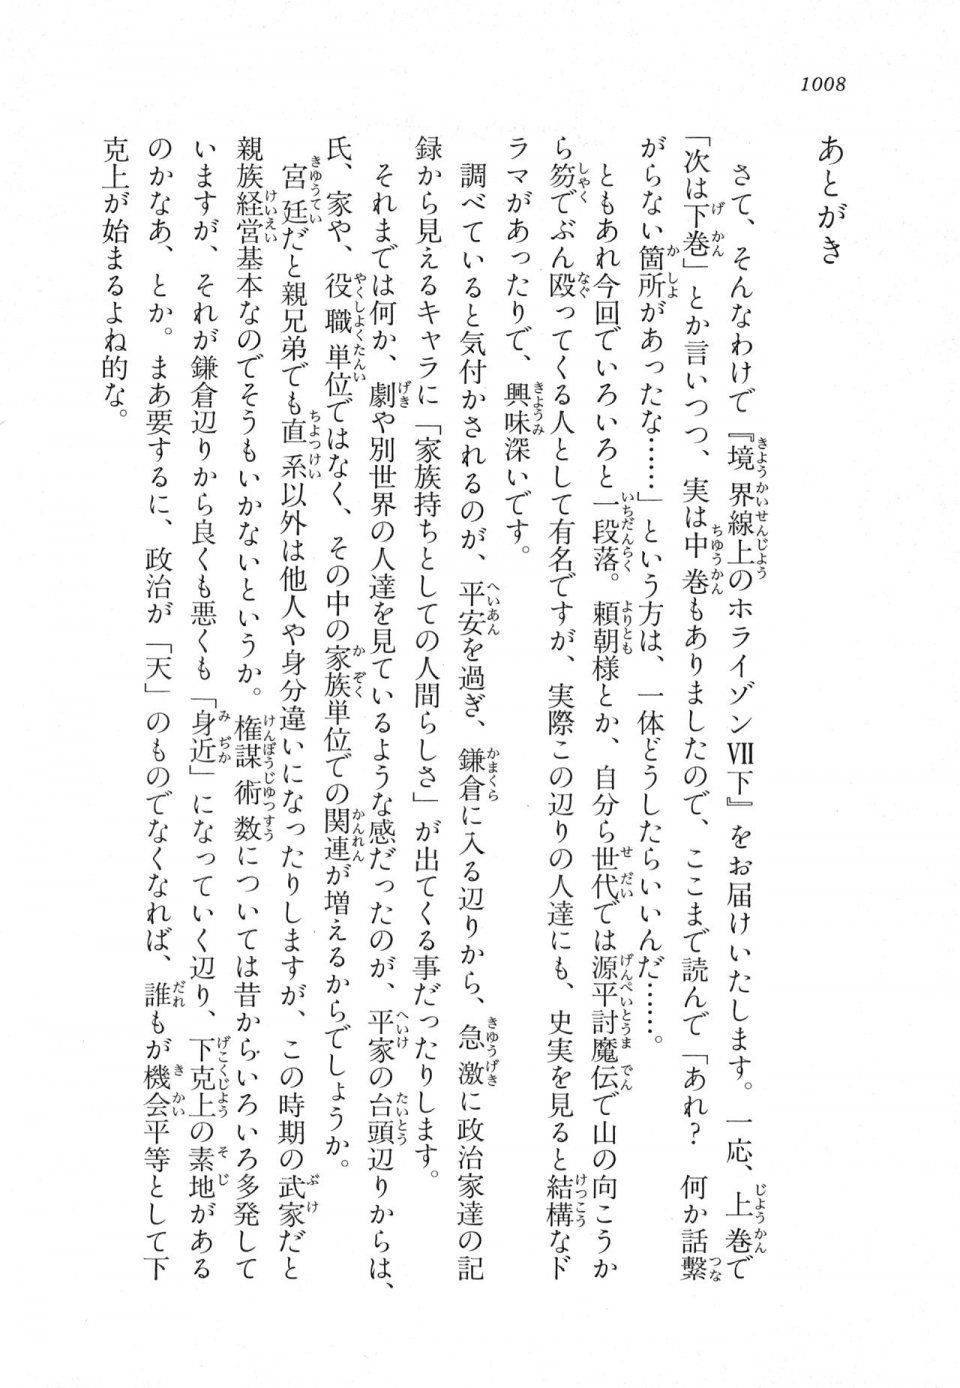 1008
あとがき
さて、そんなわけで『境界線上のホライゾンⅦ下』をお届けいたします。一応、上巻で
「次は下巻」とか言いつつ、実は中巻もありましたので、ここまで読んで「あれ？　何か話繋
がらない箇所があったな……」という方は、一体どうしたらいいんだ……。
ともあれ今回でいろいろと一段落。頼朝様とか、自分ら世代では源平討魔伝で山の向こうか
ら笏でぶん殴ってくる人として有名ですが、実際この辺りの人達にも、史実を見ると結構なド
ラマがあったりで、興味深いです。
調べていると気付かされるのが、平安を過ぎ、鎌倉に入る辺りから、急激に政治家達の記
録から見えるキャラに「家族持ちとしての人間らしさ」が出てくる事だったりします。
それまでは何か、劇や別世界の人達を見ているような感だったのが、平家の台頭辺りからは、
氏、家や、役職単位ではなく、その中の家族単位での関連が増えるからでしょうか。
宮廷だと親兄弟でも直系以外は他人や身分違いになったりしますが、この時期の武家だと
親族経営基本なのでそうもいかないというか。権謀術数については昔からいろいろ多発して
いますが、それが鎌倉辺りから良くも悪くも「身近」になっていく辺り、下克上の素地がある
のかなあ、とか。まあ要するに、政治が「天」のものでなくなれば、誰もが機会平等として下
克上が始まるよね的な。